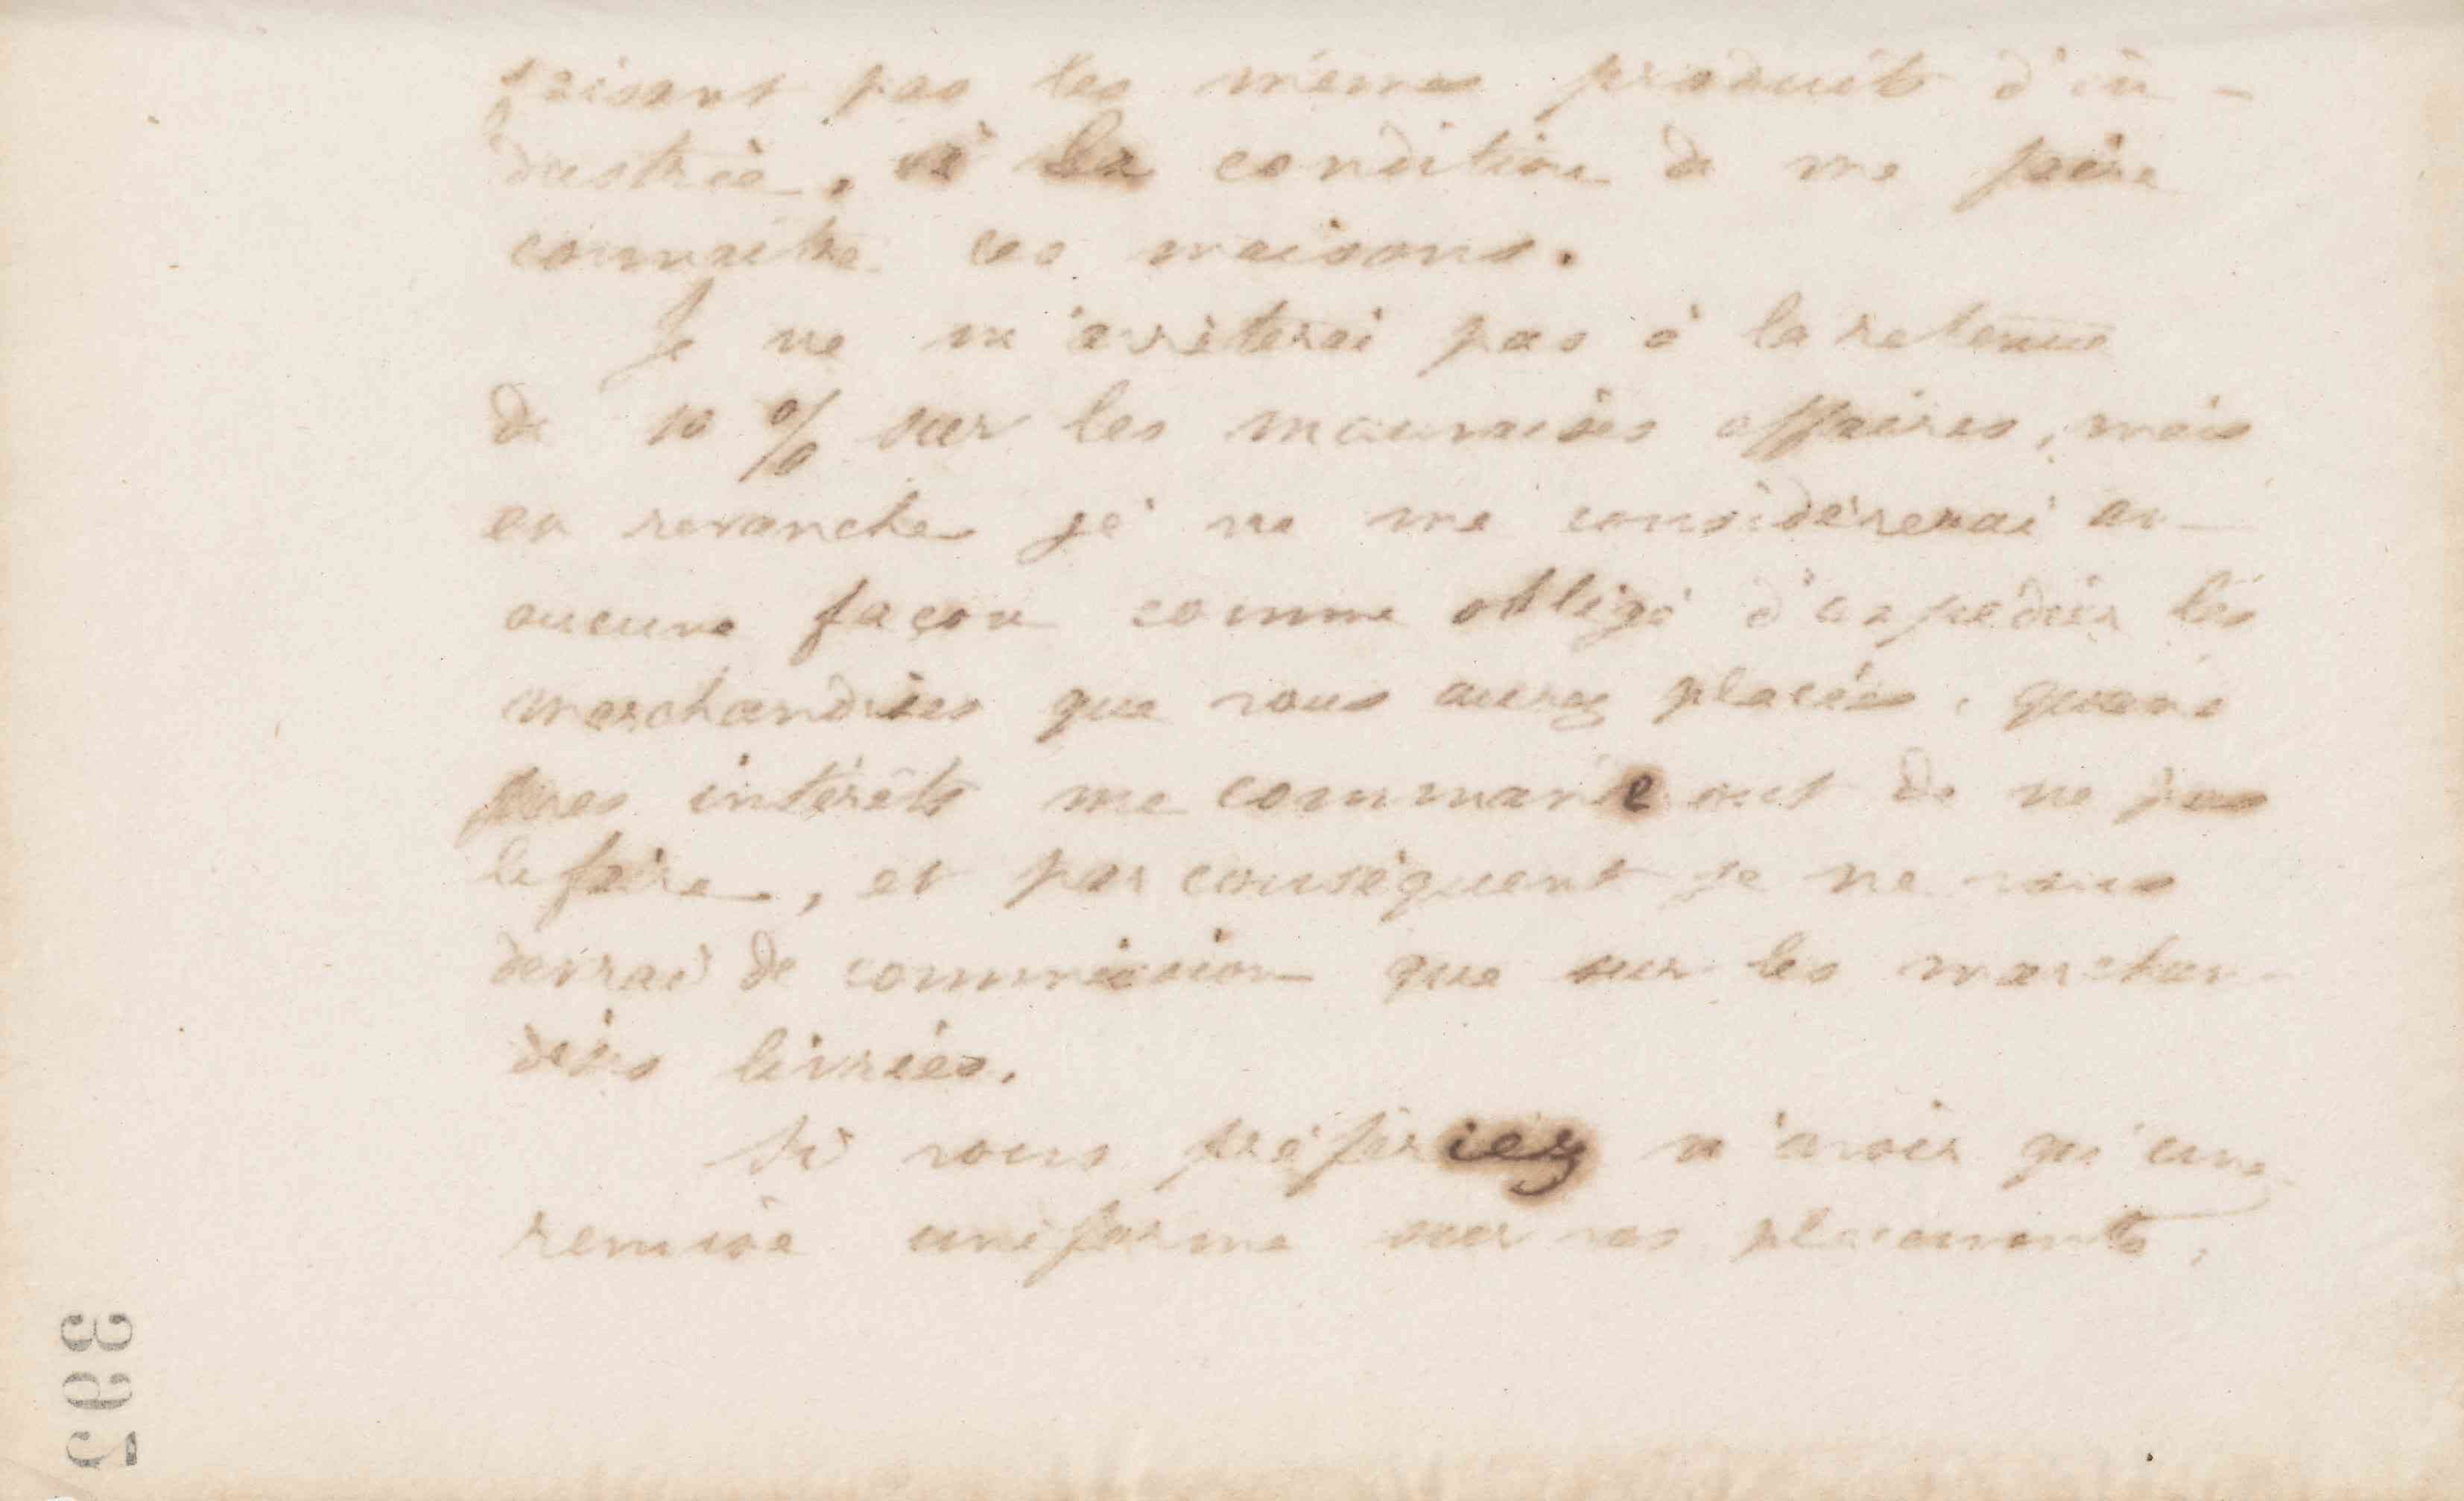 faisant pas les mêmes produits d'in-
dustrie, à la condition de me faire
connaître ces maisons.
Je ne m'arrêterai pas à la retenue
de 10 % sur les mauvaises affaires, mais
en revanche je ne me considérerai en
aucune façon comme obligé d'expédier les
marchandises que vous aurez placées, quand
mes intérêts me commanderont de ne pas
le faire, et par conséquent je ne vous
devrai de commission que sur les marchan-
dises livrées.
Si vous préfériez n'avoir qu'une
remise uniforme sur vos placements,
395